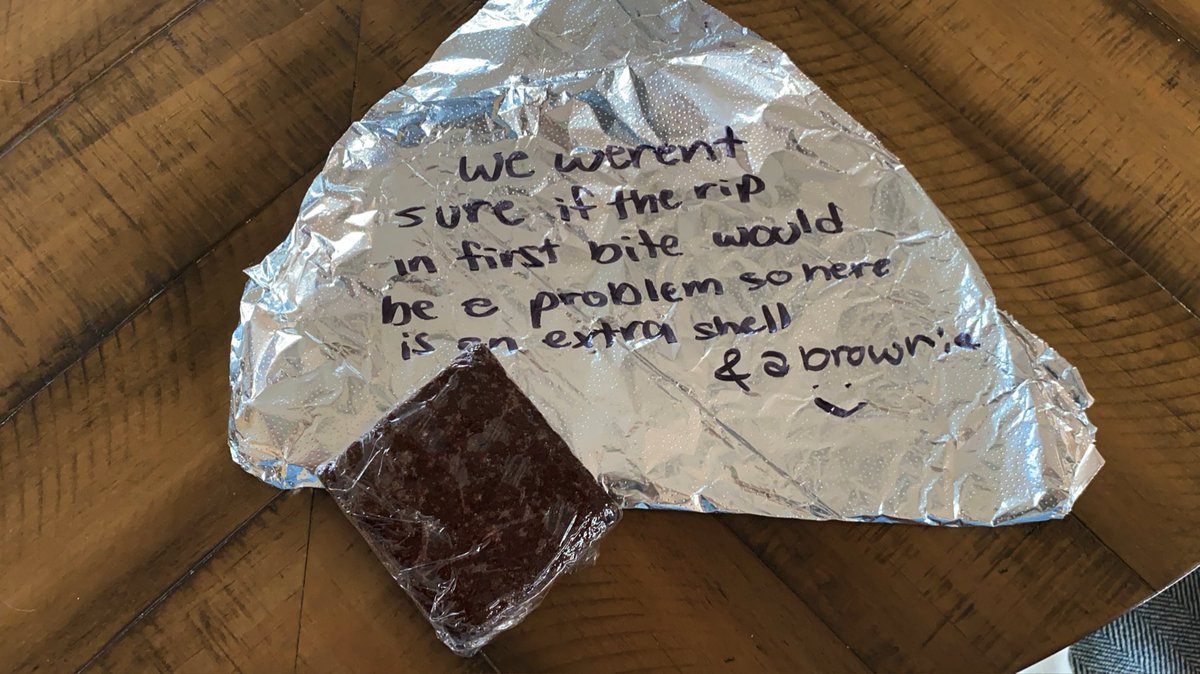 we werent
sure if the rip
in first bite would
be a problem so here
is an extra shell
& a brownie